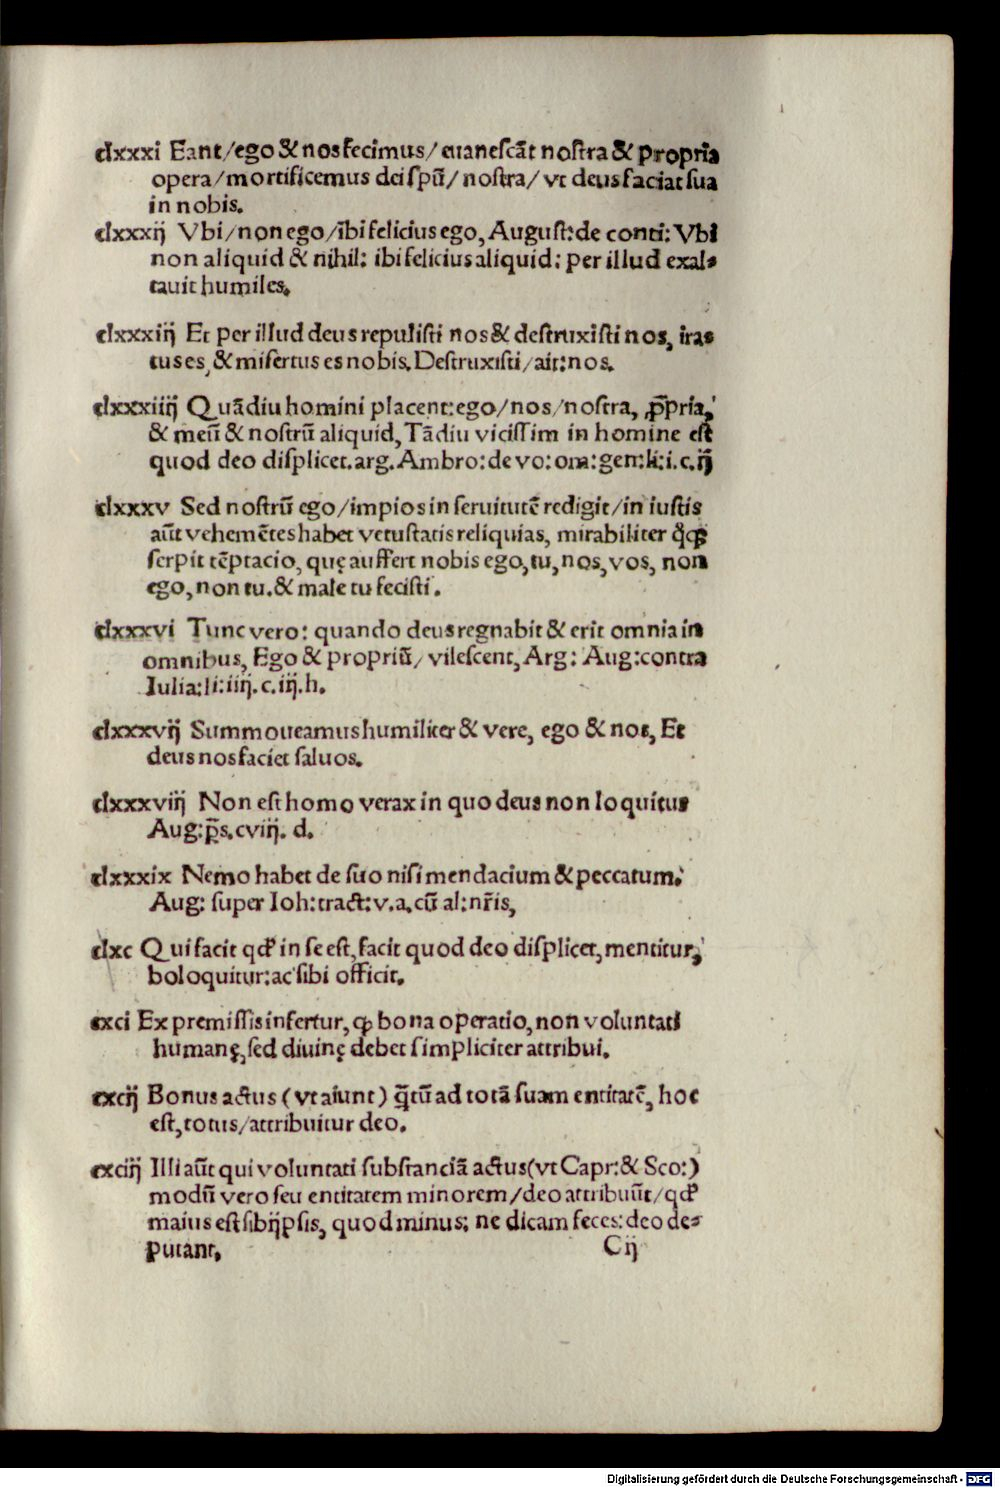 clxxxi Eant/ego & nos fecimus/euanescāt nostra & propria
opera/mortificemus dei spū/nostra/vt deus faciat sua
in nobis.
clxxxij Vbi/non ego/ībi felicius ego, August:de conti: Vbi
non aliquid & nihil: ibi felicius aliquid: per illud exal⸗
tauit humiles.
clxxxiij Et per illud deus repulisti nos & destruxisti nos, ira⸗
tus es, & misertus es nobis. Destruxisti/ait:nos.
clxxxiiij Quādiu homini placent:ego/nos/nostra, ꝓpria,
& meū & nostrū aliquid, Tādiu vicissim in homine est
quod deo displicet. arg. Ambro:de vo:om:gen:li:i.c.ij
clxxxv Sed nostrū ego/impios in seruitutē redigit/in iustis
aūt vehemētes habet vetustatis reliquias, mirabiliter
serpit tēptacio, quę auffert nobis ego, tu, nos, vos, non
ego, non tu. & male tu fecisti.
clxxxvi Tunc vero: quando deus regnabit & erit omnia in
omnibus, Ego & propriū/vilescent, Arg: Aug:contra
Iulia:li:iiij.c.iij.h.
clxxxvij Summoueamus humiliter & vere, ego & nos, Et
deus nos faciet saluos.
clxxxviij Non est homo verax in quo deus non loquitur
Aug:p̄s.cviij. d.
clxxxix Nemo habet de suo nisi mendacium & peccatum.
Aug: super Ioh:tract:v.a.cū al:nr̄is,
clxc Qui facit qđ in se est, facit quod deo displicet, mentitur,
boloquitur:ac sibi officit.
cxci Ex premissis infertur, ꝙ bona operatio, non voluntati
humanę, sed diuinę debet simpliciter attribui.
cxcij Bonus actus (vt aiunt) q̄tū ad totā suam entitatē, hoc
est, totus/attribuitur deo.
cxciij Illi aūt qui voluntati substanciā actus (vt Capr:& Sco:)
modū vero seu entitatem minorem/deo attribuūt/qđ
maius est sibijpsis, quod minus; ne dicam feces:deo de⸗
putant,
Cij
Digitalisierung gefördert durch die Deutsche Forschungsgemeinschaft - DFG